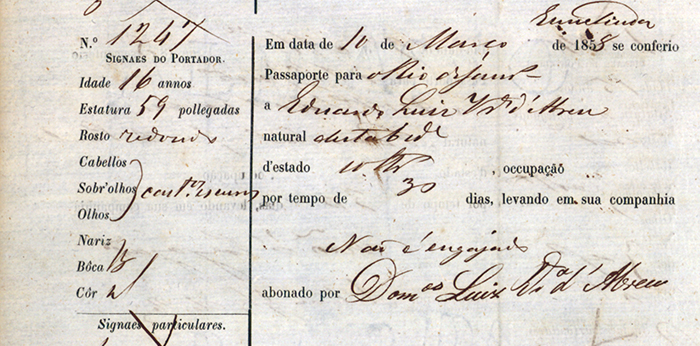 N.º 1247
Em data de 10 de Março de 1858 se conferio
SIGNAES DO PORTADOR.
Passaporte para o Rio de Janr.º
Idade 16 annos
a Eduardo Luiz d'Abreu
Estatura 59 pollegadas
natural desta
Rosto redondo
d'estado solt.º, occupação
Cabellos
Sobr'olhos cast.os escuros
por tempo de 30 dias, levando em sua companhia
Olhos
Nariz
Não é engajado
Bôca
Côr
abonado por Dom.os Luiz d'Abreu
Signaes particulares.